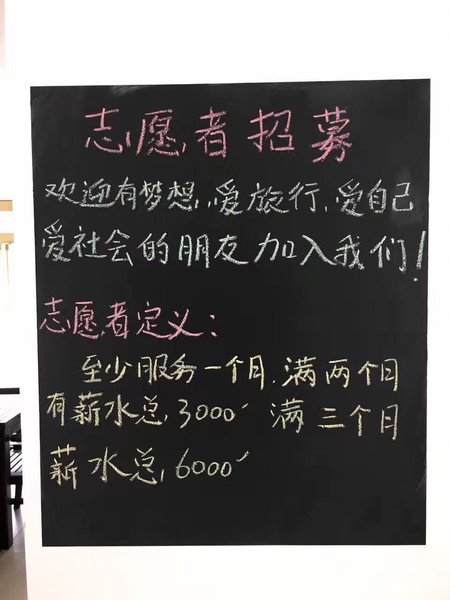 志愿者招募
欢迎有梦想,爱旅行,爱自己
爱社会的朋友加入我们!
志愿者定义:
至少服务一个月,满两个月
有薪水总3000 满三个月
薪水总6000